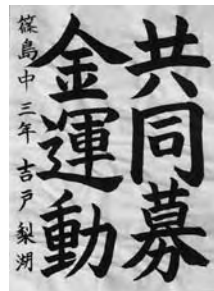 共同募
金運動
篠島中三年 吉戸梨湖